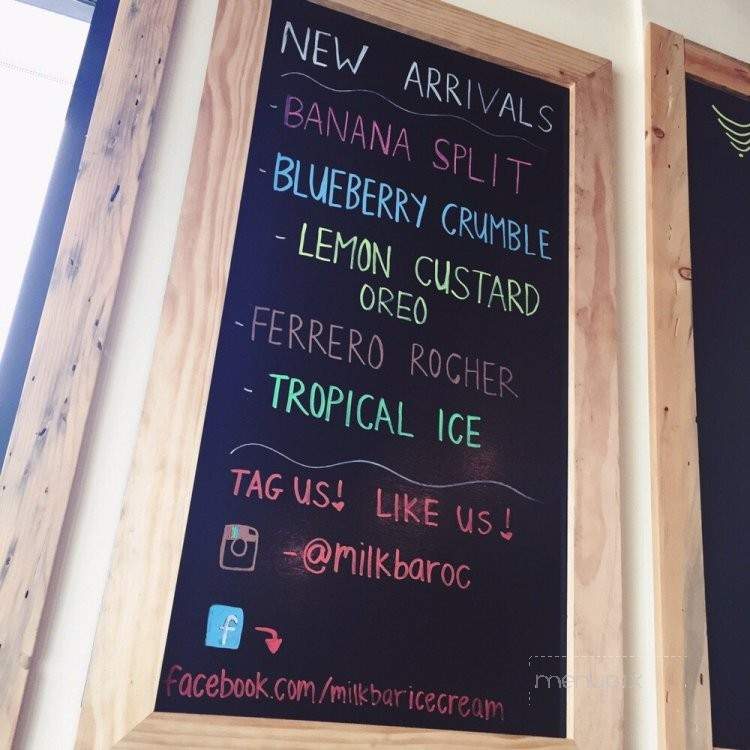 NEW ARRIVALS
- BANANA SPLIT
- BLUEBERRY CRUMBLE
- LEMON CUSTARD
OREO
- FERRERO ROCHER
- TROPICAL ICE
TAG US! LIKE US!
- @milkbaroc
f
facebook.com/milkbaricecream